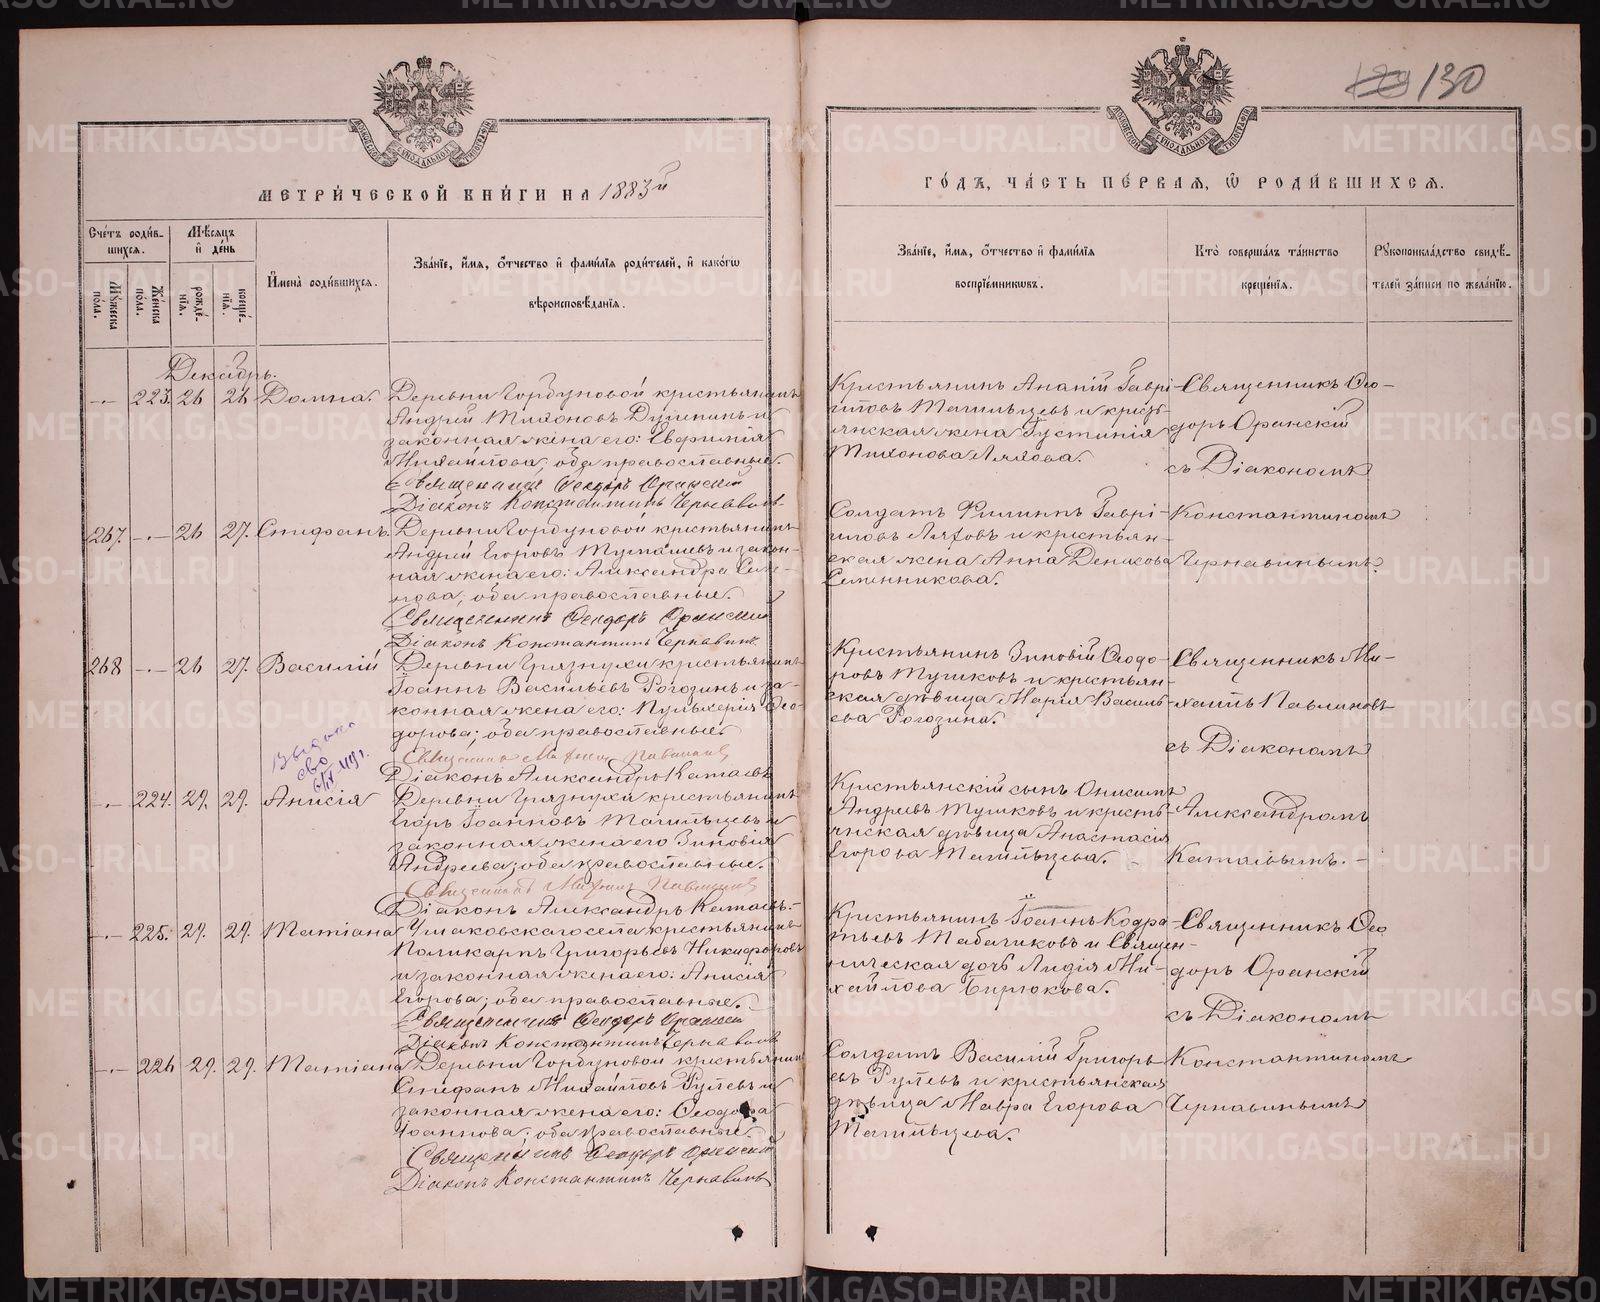 130
МЕТРИ́ЧЕСКОЙ КНИ́ГИ НА 1883й
ГО́ДЪ, ЧА́СТЬ ПЕ́РВАЯ, Ѡ РОДИ́ВШИХСЯ.
Сче́тъ роди́в-
шихся.
Мꙋ́жеска по́ла.
Же́нска по́ла.
Мѣ́сяцъ и҆ де́нь
рожде́-
нїя.
креще́-
нїя.
И҆мена̀ роди́вшихся.
Зва́нїе, и҆́мя, ѻ҆́тчество и҆ фами́лїя роди́телей, и҆ како́гѡ
вѣроисповѣ́данїя.
Зва́нїе, и҆́мя, ѻ҆́тчество и҆ фами́лїя
воспрїе́мникѡвъ.
Кто̀ соверша́лъ та́инство
креще́нїя.
Рꙋкоприкла́дство свидѣ́-
телей за́писи по жела́нїю.
Декабрь.
-.- 223. 26 26 Домна.
Деревни Горбуновой крестьянинъ
Андрей Тихоновъ Душинъ и
законная жена его: Евфимія
Михайлова, оба православные.
Священникъ Ѳеодоръ Оранскій
Діаконъ Константинъ Чернавинъ
Крестьянинъ Ананій Гаврі-
иловъ Татильцевъ и кресть-
янская жена Густинія
Тихонова Ляхова.
Священникъ Ѳео-
доръ Оранскій
съ Діакономъ
267. -.- 26 27. Стифанъ.
Деревни Горбуновой крестьянинъ
Андрей Егоровъ Тупашевъ и закон-
ная жена его: Александра Семе-
нова, оба православные.
Священникъ Ѳеодоръ Оранскій
Діаконъ Константинъ Чернавинъ.
Солдатъ Филиппъ Гаврі-
иловъ Ляховъ и крестьян-
ская жена Анна Денисова
Семенникова.
Константиномъ
Чернавинымъ.
268 -.- 26 27. Василій
Деревни Грязнухи крестьянинъ
Іоаннъ Васильевъ Рогозинъ и за-
конная жена его: Пульхерія Ѳео-
дорова; оба православные
Діаконъ Александръ Катаевъ
Крестьянинъ Зиновій Ѳеодо-
ровъ Тушковъ и крестьян-
ская дѣвица Марія Василь-
ева Рогозина.
Священникъ Ми-
хаилъ Павлиновъ
съ Діакономъ
-.- 224. 29. 29. Анисія
Деревни Грязнухи крестьянинъ
Егоръ Іоанновъ Татильцевъ и
законная жена его Зиновія
Андреева; оба православные.
Діаконъ Александръ Катаевъ.-
Крестьянскій сынъ Онисимъ
Андреевъ Тушковъ и кресть-
янская дѣвица Анастасія
Егорова Татильцева.
Александромъ
Катаевымъ.-
-.- 225. 29. 29. Татіана
Ушаковскаго села крестьянинъ
Поликарпъ Григорьевъ Никифоровъ
и законная жена его: Анисія
Егорова; оба православные.
Священникъ Ѳеодоръ Оранскій
Діаконъ Константинъ Чернавинъ
Крестьянинъ Іоаннъ Кодра-
тьевъ Табатиковъ и Священ-
ническая дочь Лидія Ми-
хайлова Бирюкова.
Священникъ Ѳео
доръ Оранскій
съ Діакономъ
-.- 226 29. 29. Татіана
Деревни Горбуновой крестьянинъ
Стифанъ Михайловъ Гулевъ и
законная жена его: Ѳеодора
Іоаннова; оба православные.
Священникъ Ѳеодоръ Оранскій
Діаконъ Константинъ Чернавинъ
Солдатъ Василій Григорь-
евъ Гулевъ и крестьянская
дѣвица Мавра Егорова
Татильцева.
Константиномъ
Чернавинымъ
METRIKI.GASO-URAL.RU